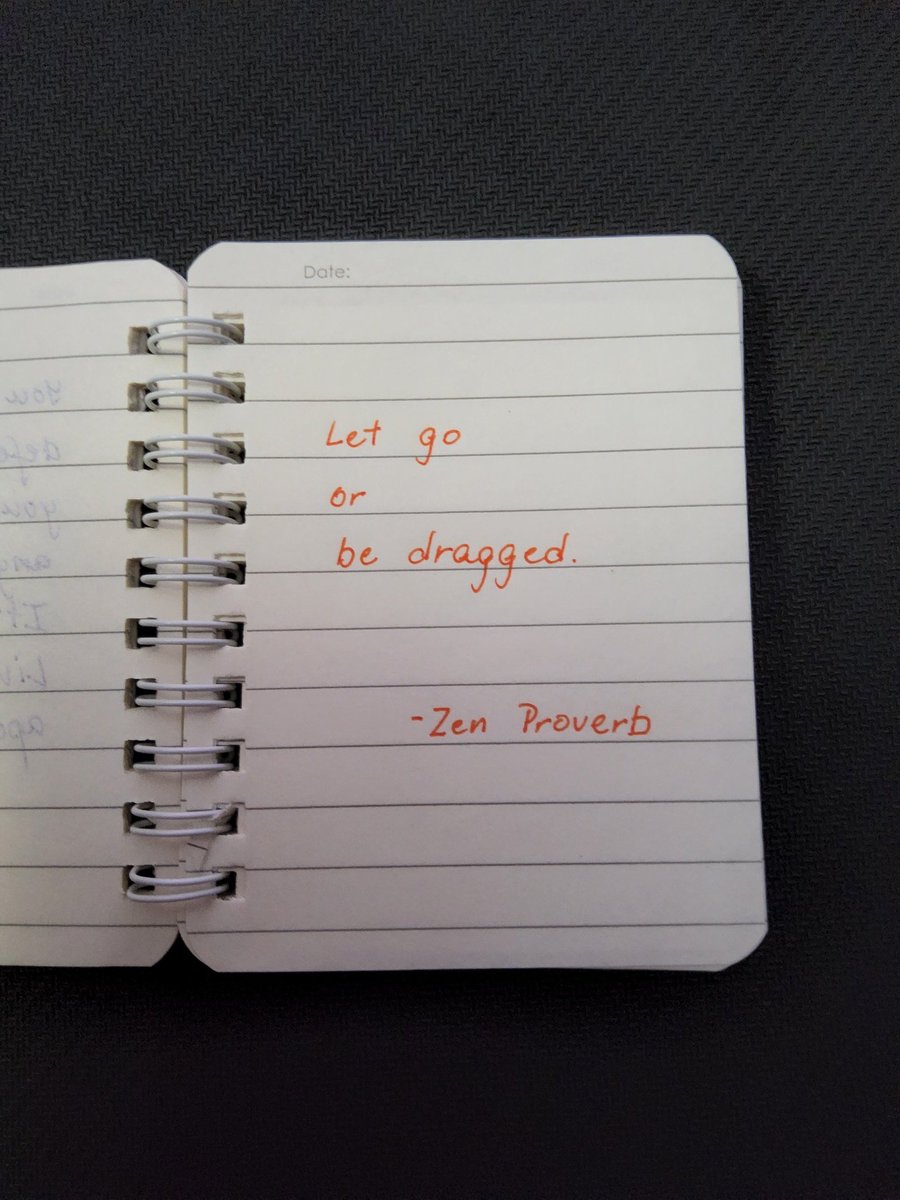 Date:
Let go
or
be dragged.
-Zen Proverb